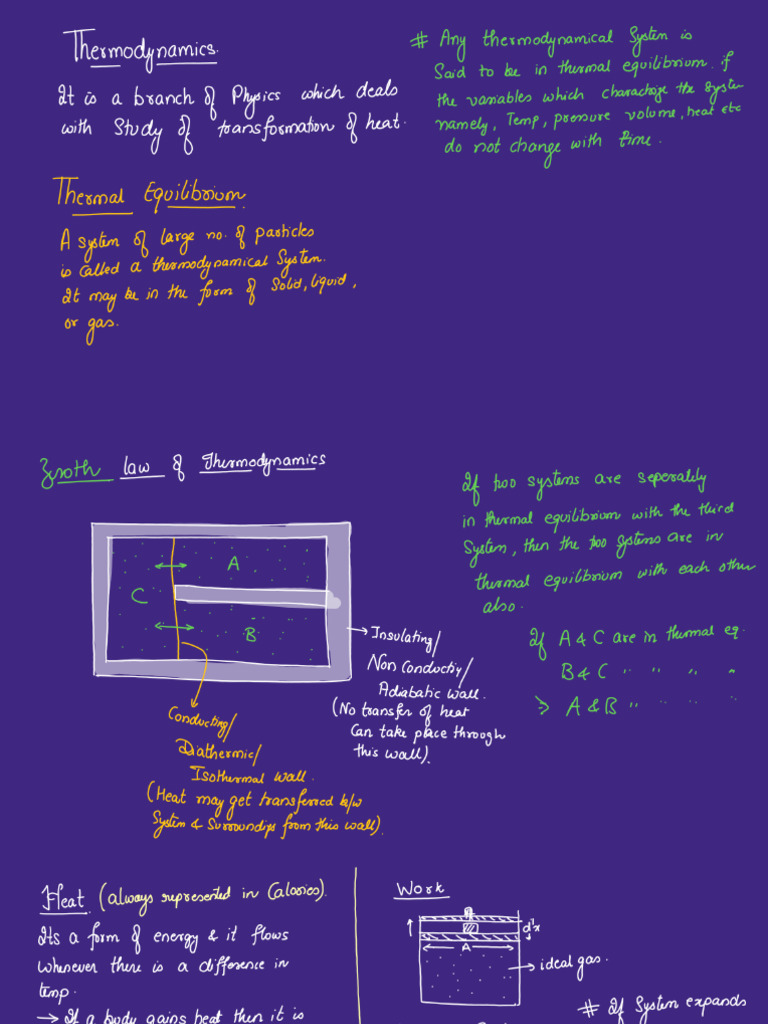 Thermodynamics.
It is a branch of Physics which deals
with Study of transformation of heat.
# Any thermodynamical System is
Said to be in thermal equilibrium. if
the variables which charachize the System
namely, Temp, pressure volume, heat etc
do not change with time.
Thermal Equilibrium.
A system of large no. of particles
is called a thermodynamical System.
It may be in the form of Solid, liquid,
or gas.
Zeroth law of Thermodynamics
If two systems are seperately
in thermal equilibrium with the third
System, then the two systems are in
thermal equilibrium with each other
also.
If A & C are in thermal eq.
B & C " " " "
⇒ A & B " " " "
A
C
B
→ Insulating/
Non Conductiy/
Adiabatic wall.
(No transfer of heat
Can take place through
this wall).
Conducting/
Diathermic/
Isothermal wall.
(Heat may get transferred b/w
System & Surroundigs from this wall).
Heat (always represented in Calories).
Its a form of energy & it flows
whenever there is a difference in
temp.
→ If a body gains heat then it is
Work
A
→ ideal gas.
# If System expands